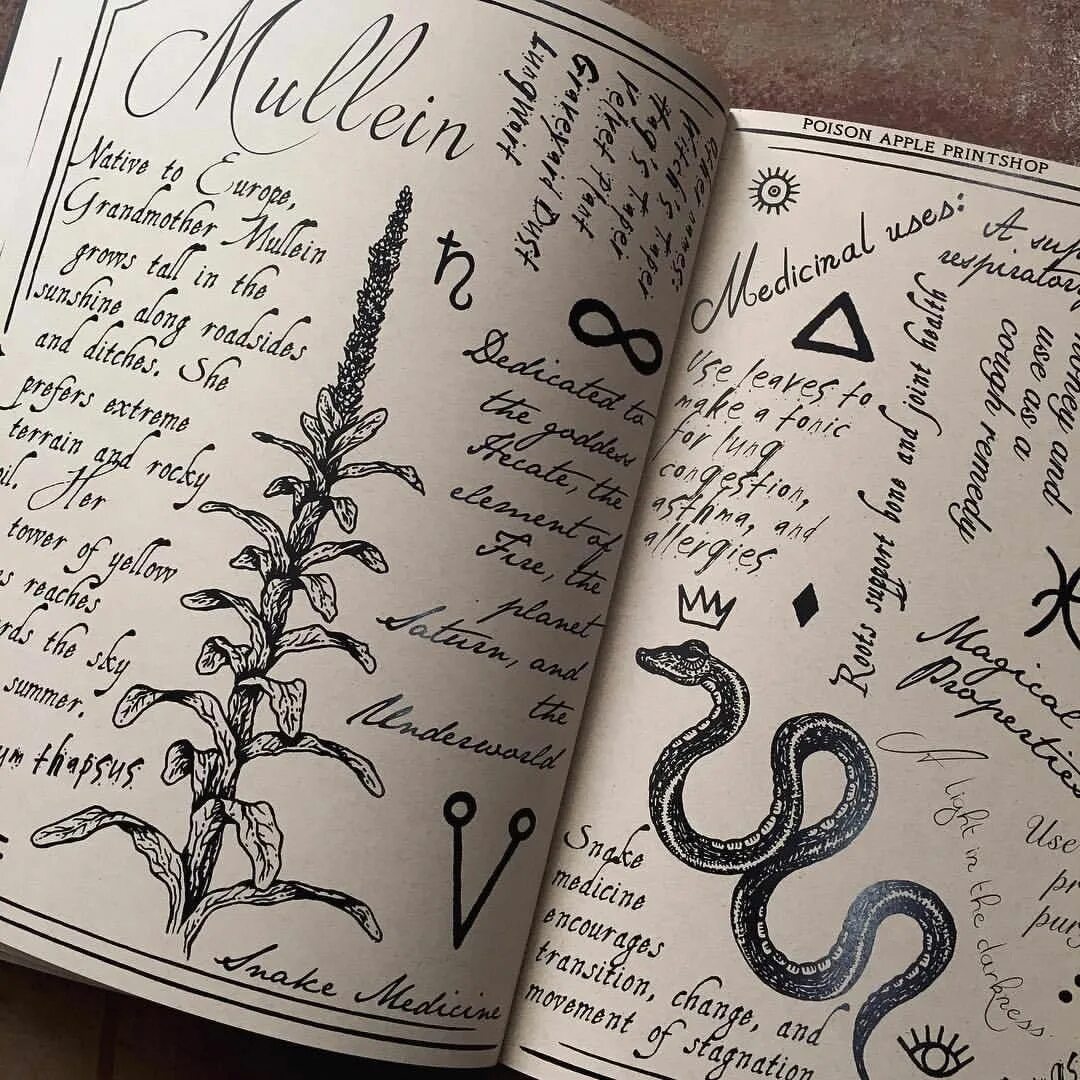 Mullein
Native to Europe,
Grandmother Mullein
grows tall in the
sunshine along roadsides
and ditches. She
prefers extreme
terrain and rocky
Her
tower of yellow
reaches
the sky
summer.
thapsus
Other names:
Witch's Taper
Hag's Taper
Velvet Plant
Graveyard Dust
Lungwort
Dedicated to
the goddess
Hecate, the
element of
Fire, the
planet
Saturn, and
the
Underworld
Snake Medicine
POISON APPLE PRINTSHOP
Medicinal uses:
Use leaves to
make a tonic
for lung
congestion,
asthma, and
allergies
Roots support bone and joint health
A
respiratory
honey and
use as a
cough remedy
Magical
Properties
A light in the darkness
Use
Snake
medicine
encourages
transition, change, and
movement of stagnation